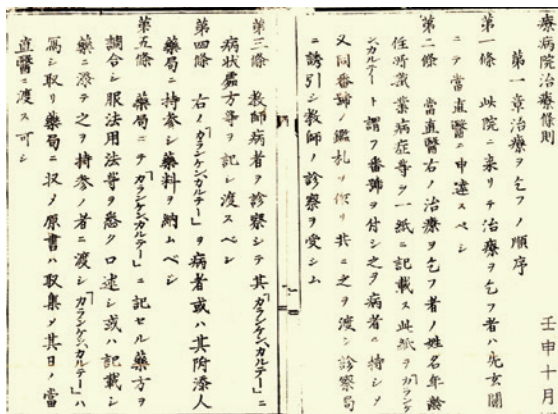 療病院治療條則
壬申十月
第一章治療ヲ乞フノ順序
第一條 此院ニ来リテ治療ヲ乞フ者ハ先玄関
ニテ當直醫ニ申達スベシ
第二條 當直醫右ノ治療ヲ乞フ者ノ姓名年齢
住所職業病症等ヲ一紙ニ記載ス此紙ヲ「カランケ
ンカルテー」ト謂フ番號ヲ付シ之ヲ病者ニ持シメ
又同番號ノ鑑札ヲ作リ共ニ之ヲ渡シ診察局
ニ誘引シ教師ノ診察ヲ受シム
第三條 教師病者ヲ診察シテ其「カランケンカルテー」ニ
病状處方等ヲ記シ渡スベシ
第四條 右ノ「カランケンカルテー」ヲ病者或ハ其附添人
藥局ニ持参シ藥料ヲ納ムベシ
第五條 藥局ニテ「カランケンカルテー」ニ記セル藥方ヲ
調合シ服法用法等ヲ悉ク口述シ或ハ記載シ
藥ニ添テ之ヲ持参ノ者ニ渡シ「カランケンカルテー」ハ
寫シ取リ藥局ニ収メ原書ハ取集メ其日ノ當
直醫ニ渡ス可シ